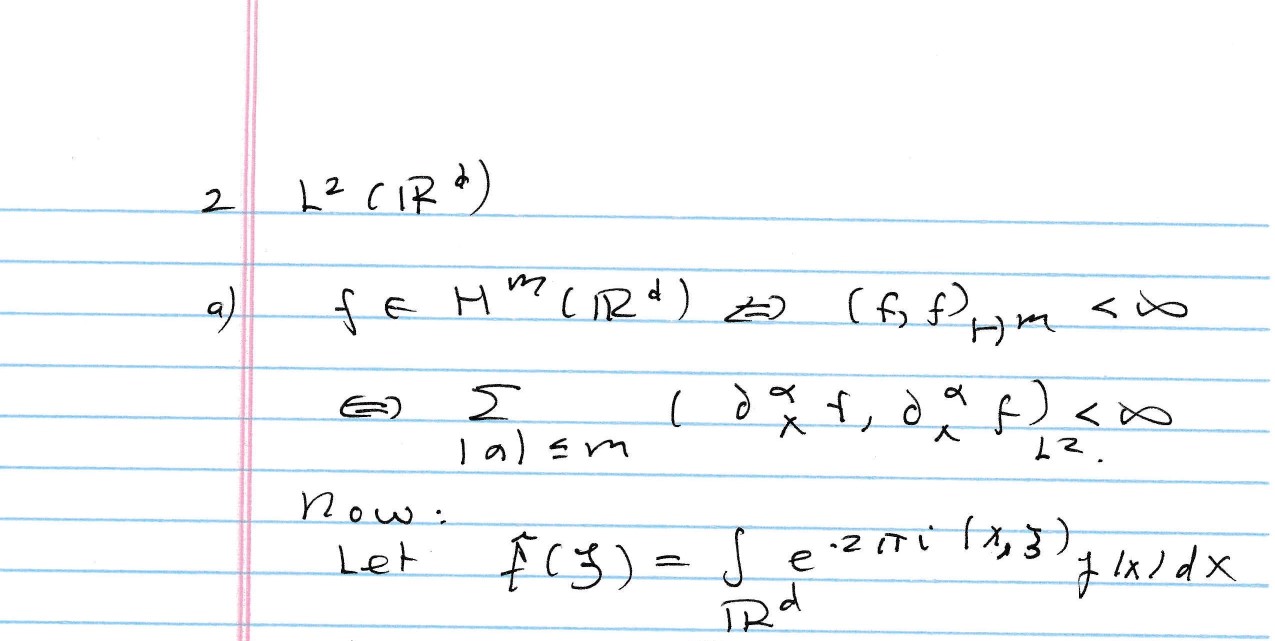 2 L² (ℝᵈ)
a) f ∈ Hᵐ (ℝᵈ) ⇔ (f, f)_{Hᵐ} < ∞
⇔ ∑_{|α| ≤ m} (∂ₓ^α f, ∂ₓ^α f)_{L²} < ∞.
Now:
Let f̂(ξ) = ∫_{ℝᵈ} e^{-2πi (x,ξ)} f(x) dx